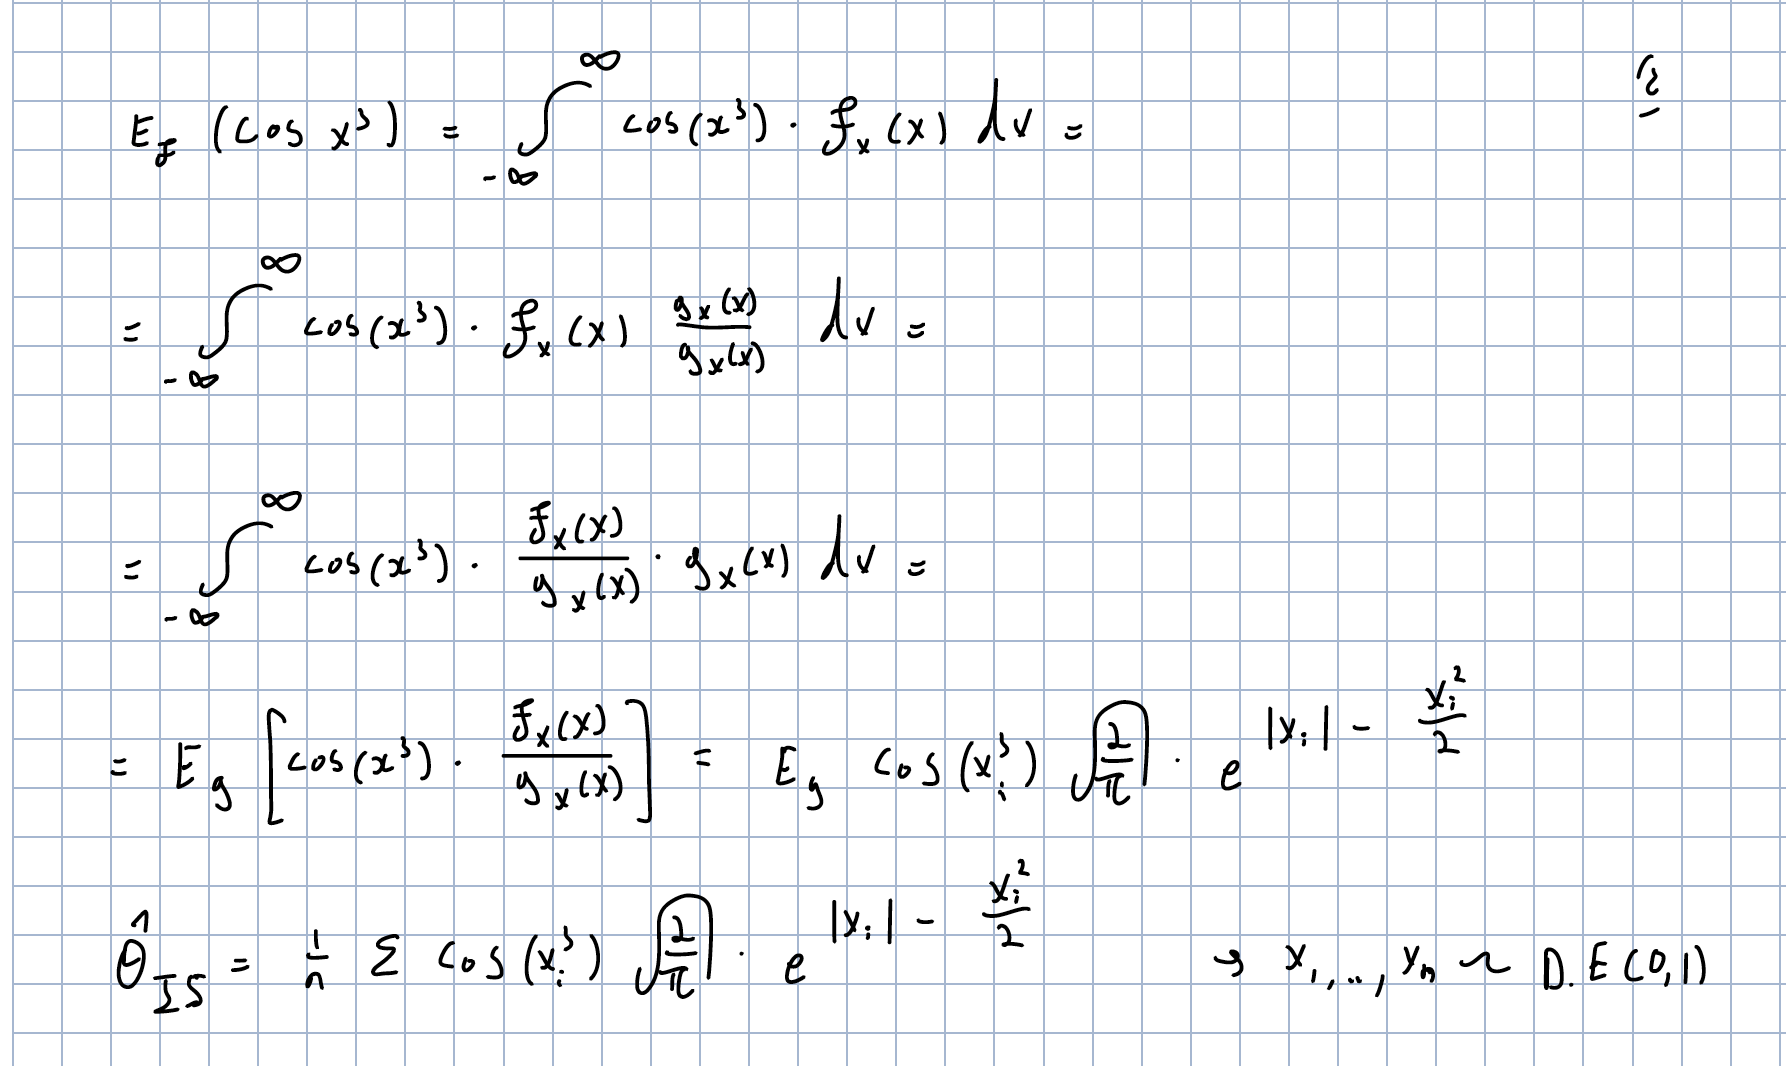 E_f (cos x³) = ∫_{-∞}^{∞} cos(x³) · f_x(x) dx =
= ∫_{-∞}^{∞} cos(x³) · f_x(x) g_x(x)/g_x(x) dx =
= ∫_{-∞}^{∞} cos(x³) · f_x(x)/g_x(x) · g_x(x) dx =
= E_g [cos(x³) · f_x(x)/g_x(x)] = E_g cos(x_i³) √(2/π) · e^{|x_i| - x_i²/2}
θ̂_IS = 1/n Σ cos(x_i³) √(2/π) · e^{|x_i| - x_i²/2} → x_1,..,x_n ~ D.E(0,1)